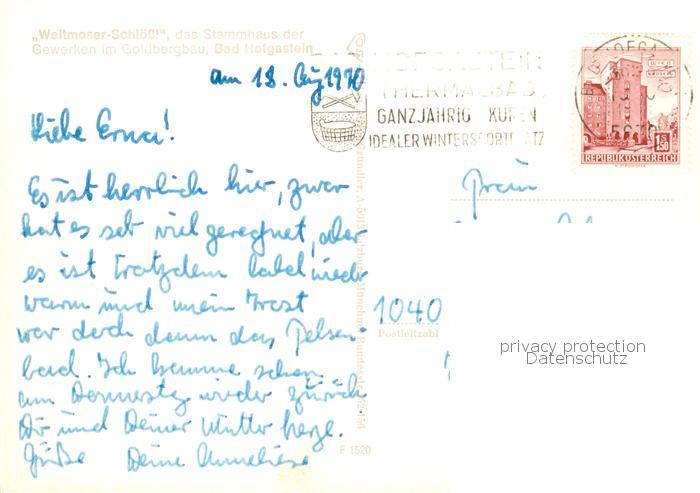 „Weitmoser-Schlößl", das Stammhaus der
Gewerken im Goldbergbau, Bad Hofgastein
am 18. Aug 1970
Liebe Erna!
Es ist herrlich hier, zwar
hat es seh viel geregnet, aber
es ist trotzdem bald wieder
warm und mein Trost
war doch dann das Felsen-
bad. Ich komme schon
am Donnerstag wieder zurück
Dir und Deiner Mutter herzl.
Grüße Deine Anneliese
BAD HOFGASTEIN
THERMALBAD
GANZJÄHRIG KUREN
IDEALER WINTERSPORTPLATZ
WIEN
1.50
REPUBLIK ÖSTERREICH
5630
Frau
1040
Postleitzahl
F 1520
privacy protection
Datenschutz